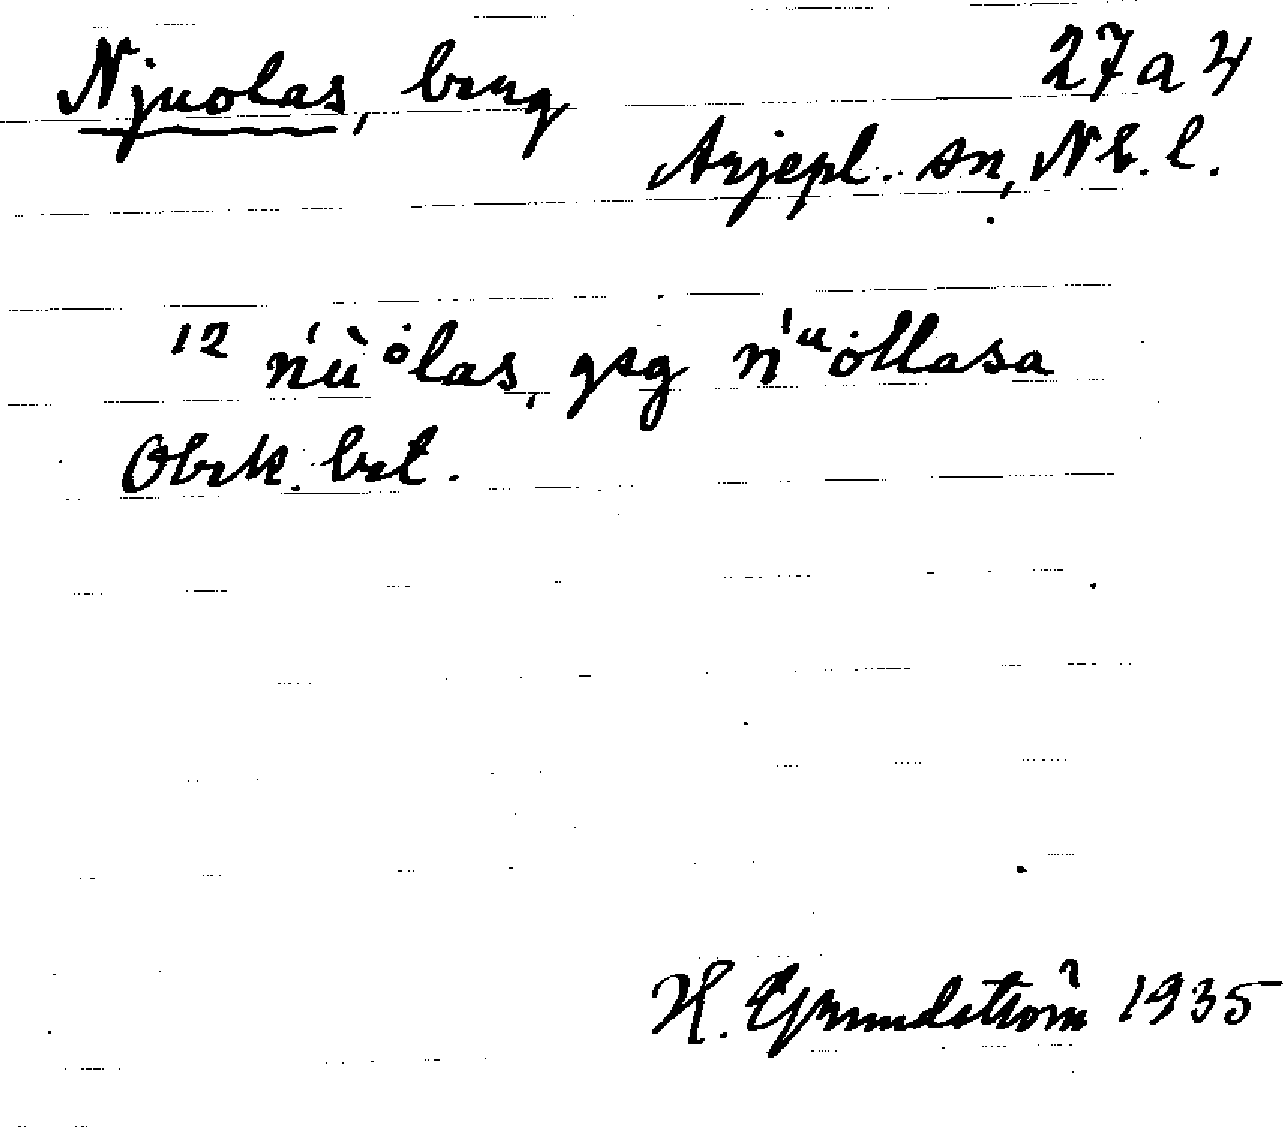 Njuolas, berg 27a4
Arjepl. sn, Nb. l.
12 ńù ȯlas, gsg ń'ᵘȯllasa
Obek. bet.
H. Grundström 1935